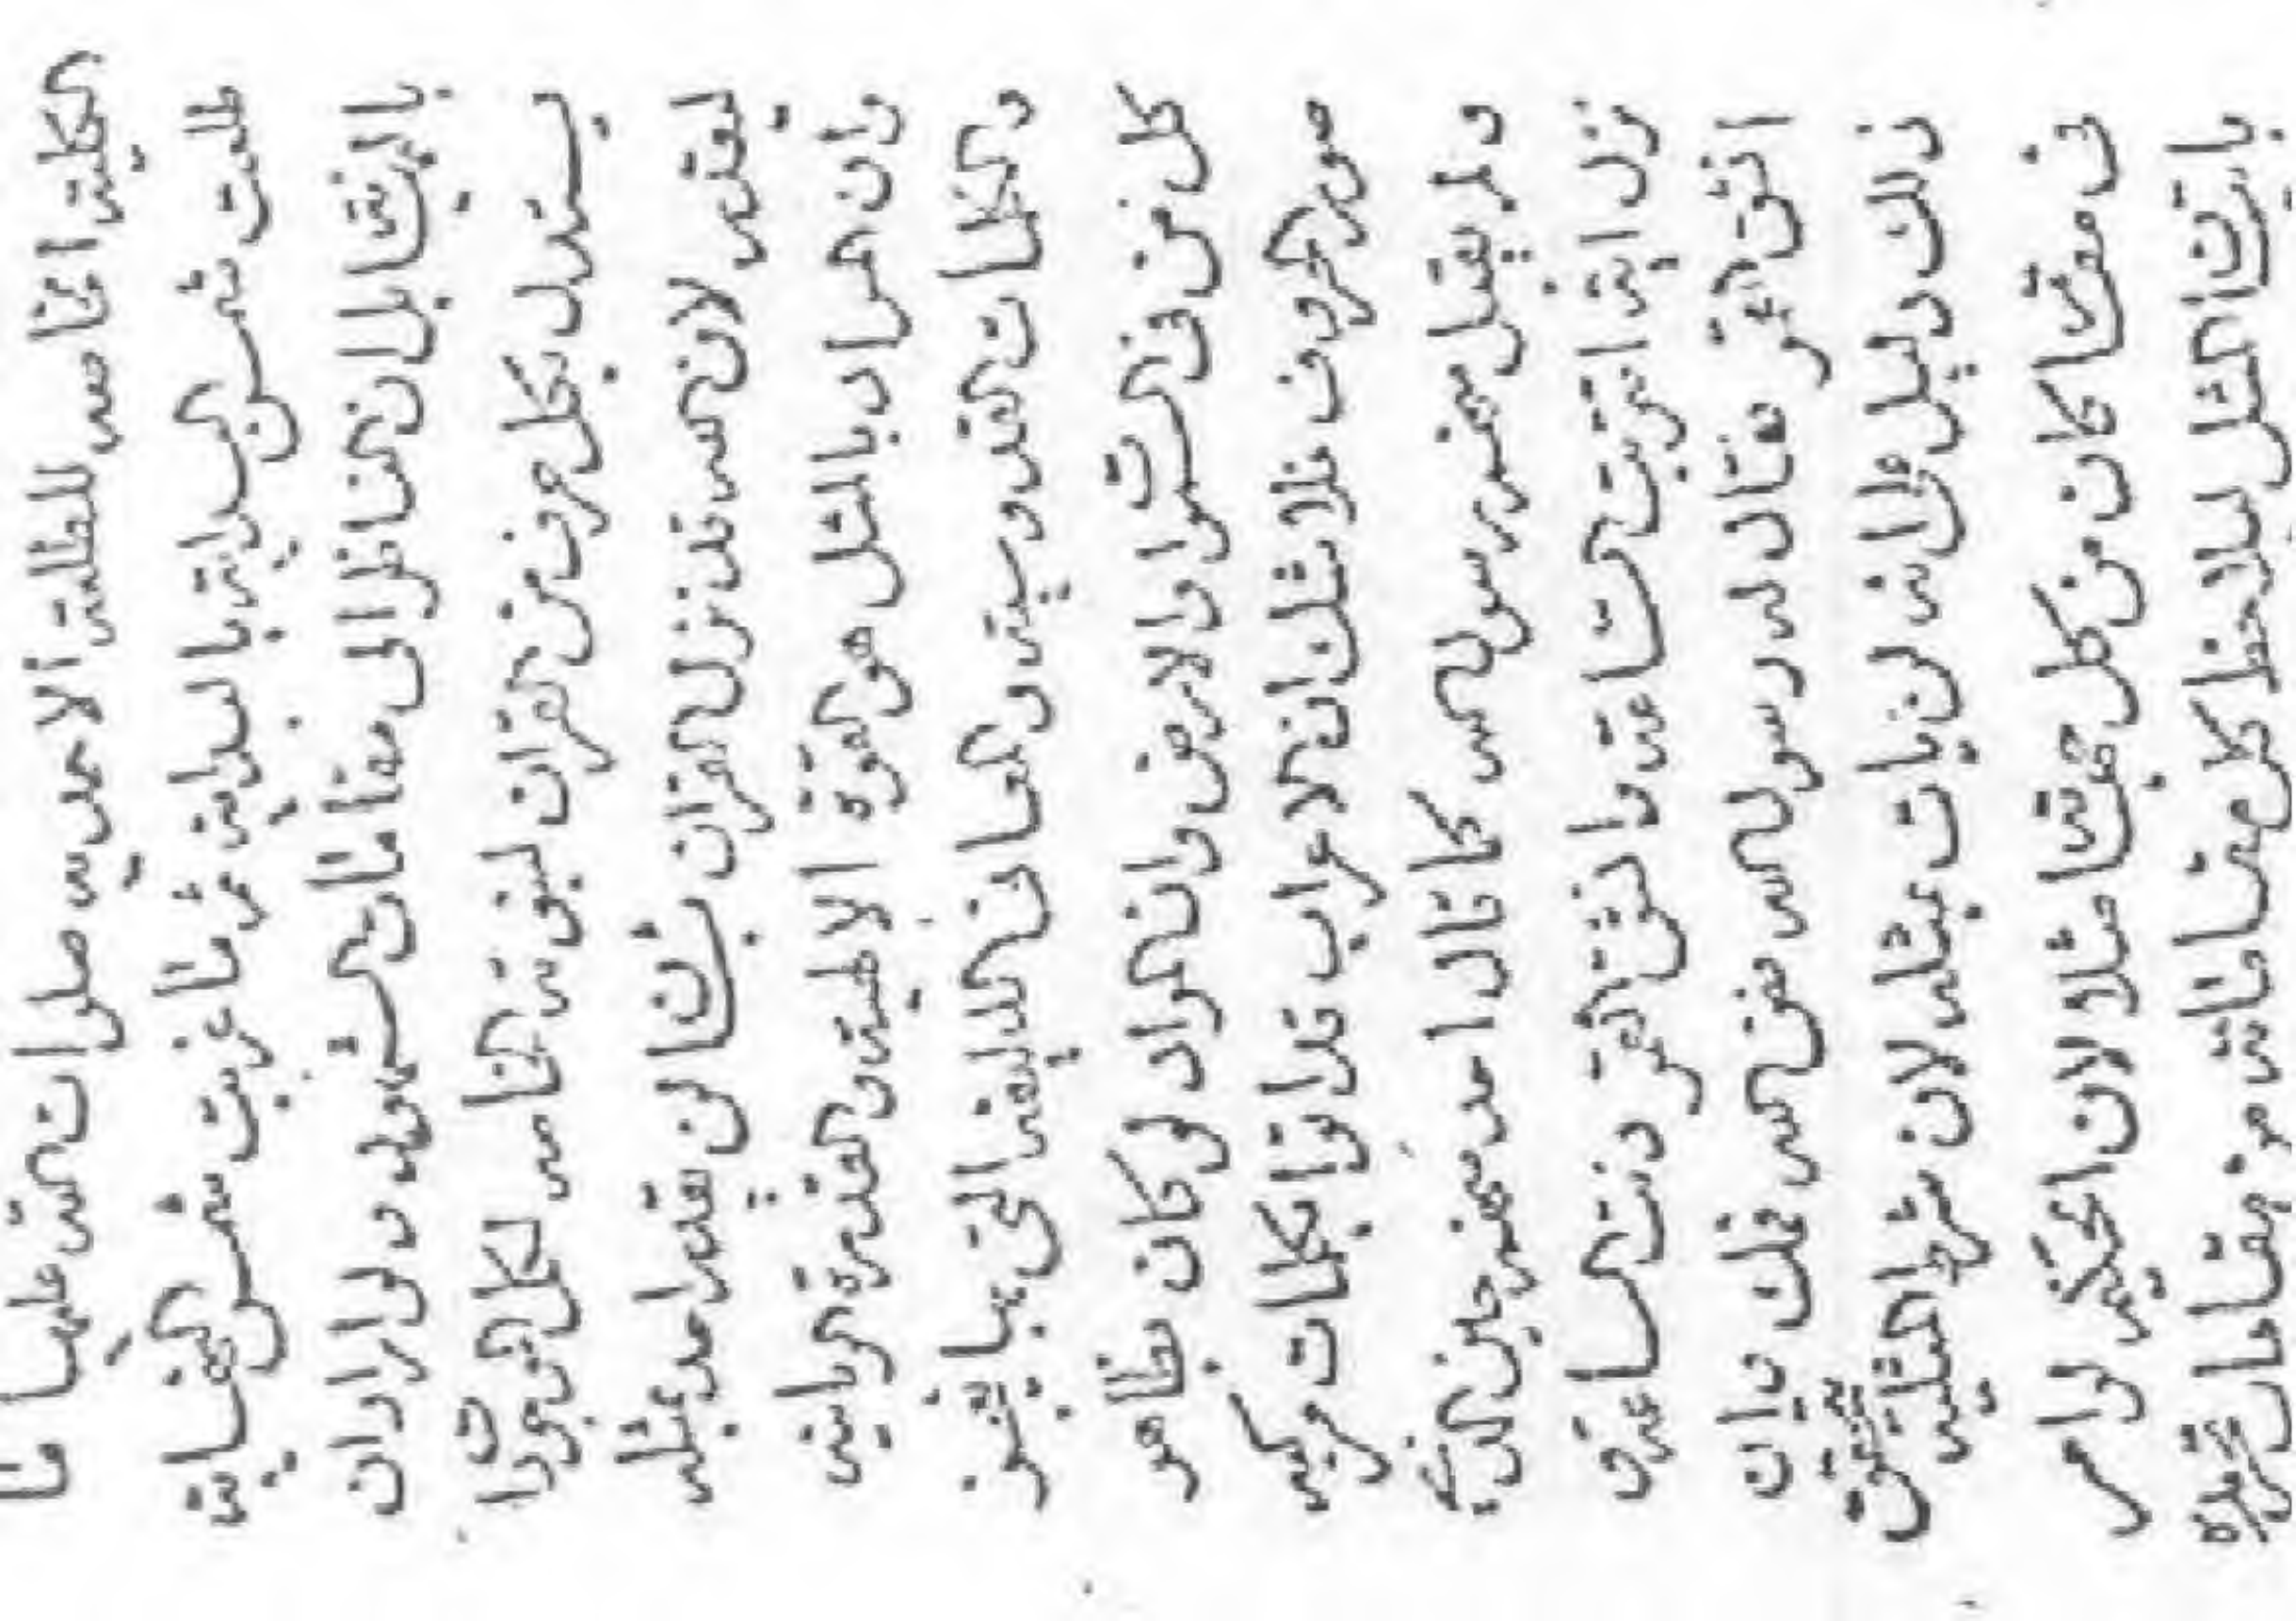 الكلية صه للطلعة الاحدية صلوات الله عليها
طلعت شمس البداية بالبداية غربت شمس النهاية
ان الناظر الى مقاماته ولو اراد ان
يستدل بكل حرف من القران لنبوته الناس لكل
ليقدر لان الله قد نزل القران بشان لن يقدر احد بمثله
وان المراد بالمثل هو القوة الالهية والقدرة الربانية
والكلمات القدوسية والمعانى التى بها يعجز
كل من فى السموات والارض وان المراد لو كان ظاهر
صور الحروف فلا شك ان الاعراب قد اتوا بكلمات مركبه
ولم يقبل منهم رسول الله كما قال احد منهم حين الذى
نزل اية اقتربت الساعة وانشق القمر دنت الساعة و
انشق القمر فقال له رسول الله فض الله فمك وان
ذلك دليل على انه لن يات بمثله لان شرط المثلية يتحقق
فى مقام كان من كل جهة مثلا لان الحكيم لو امر
باتيان المثل ليلاحظ كل مقاماته من مقامات تجرده